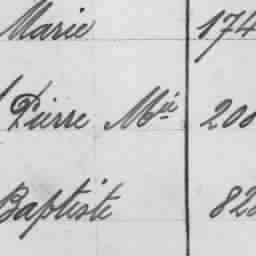 Marie 174
Pierre Mie 200
Baptiste 82